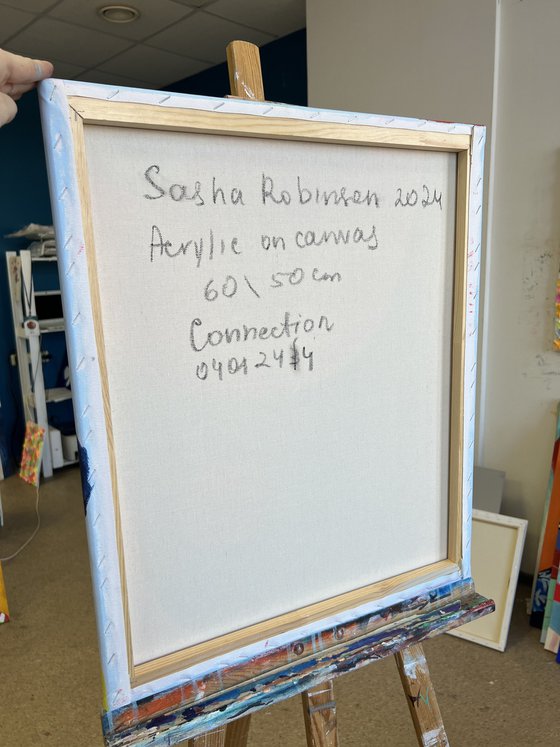 Sasha Robinson 2024
Acrylic on canvas
60\50 cm
Connection